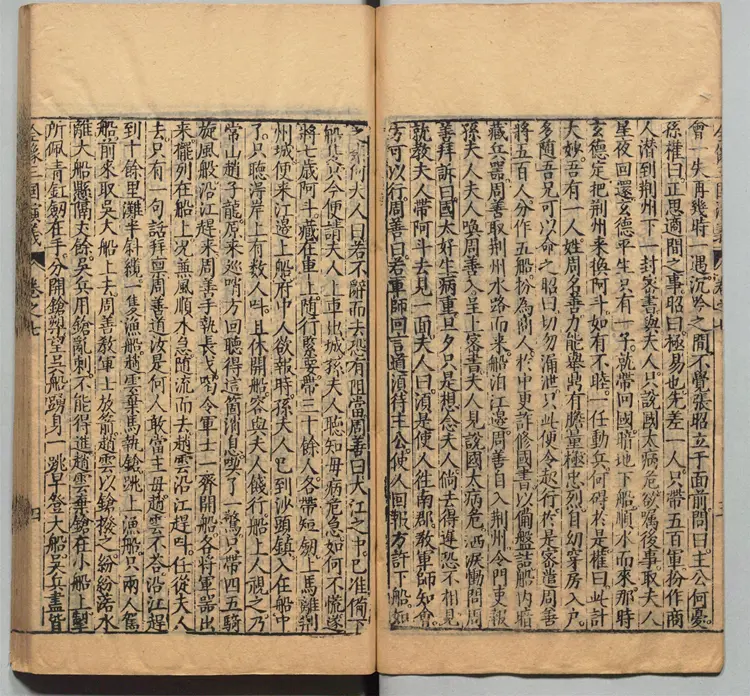 會一失再幾時一遇沉吟之間不覺張昭立于面前問曰主公何憂
孫權曰正思適間之事昭曰極易也先差一人只帶五百軍扮作商
人潛到荆州下一封密書與夫人只說國太病危欲囑後事取夫人
星夜回還玄德平生只有一子就帶回國暗地下船順水而來那時
玄德定把荆州來換阿斗如有不睦一任動兵何碍於是權曰此計
大妙吾有一人姓周名善力能舉鼎有膽量極忠烈自幼穿房入户
多随吾兄可以命之昭曰切勿漏泄只此便令起行於是密遣周善
將五百人分作五船扮為商人於中更詐修國書以備盤詰船内賍
藏兵噐周善取荆州水路而來船泊江邊周善自入荆州令門吏報
孫夫人夫人喚周善入呈上密書夫人見說國太病危洒淚動問周
善拜訴曰國太好生病重旦夕只是想念夫人倘去得遲恐不相見
就教夫人帶阿斗去見一面夫人曰湏是使人往南郡敎軍師知會
方可以行周善曰若軍師回言道湏待主公使人回報方許下船如
之奈何夫人曰若不辭而去恐有阻當周善曰大江之中已准備下
船隻只今便請夫人上車出城孫夫人聽知母病危急如何不慌遂
將七歲阿斗藏在車上隨行緊要帶三十餘人各帶短劔上馬離荆
州城便來江邊上船府中人欲報時孫夫人已到沙頭鎮入在船中
了只聽得岸上有数人呌且休開船容與夫人餞行船上人視之乃
常山趙子龍原來巡哨方回聽得這箇消息吃了一驚只帶四五騎
旋風般沿江趕來周善手執長戈喝令軍士一齊開船各將軍噐出
來擺列在船上况無風順水急随流而去趙雲沿江趕呌任從夫人
去只有一句話拜禀周善道汝是何人敢當主母趙雲不答沿江趕
到十餘里灘半斜纜一隻漁船趙雲棄馬執鎗跳上漁船只兩人駕
船前來取吳大船上夫周善教軍士放箭趙雲以鎗撥之紛紛落水
離大船懸隔丈餘吳兵用鎗亂刺不能得進趙雲棄鎗在小船
所佩青釭劔在手分開鎗搠望吳船踴身一跳早登大船吳兵盡皆
全像三國演義
卷之七
四